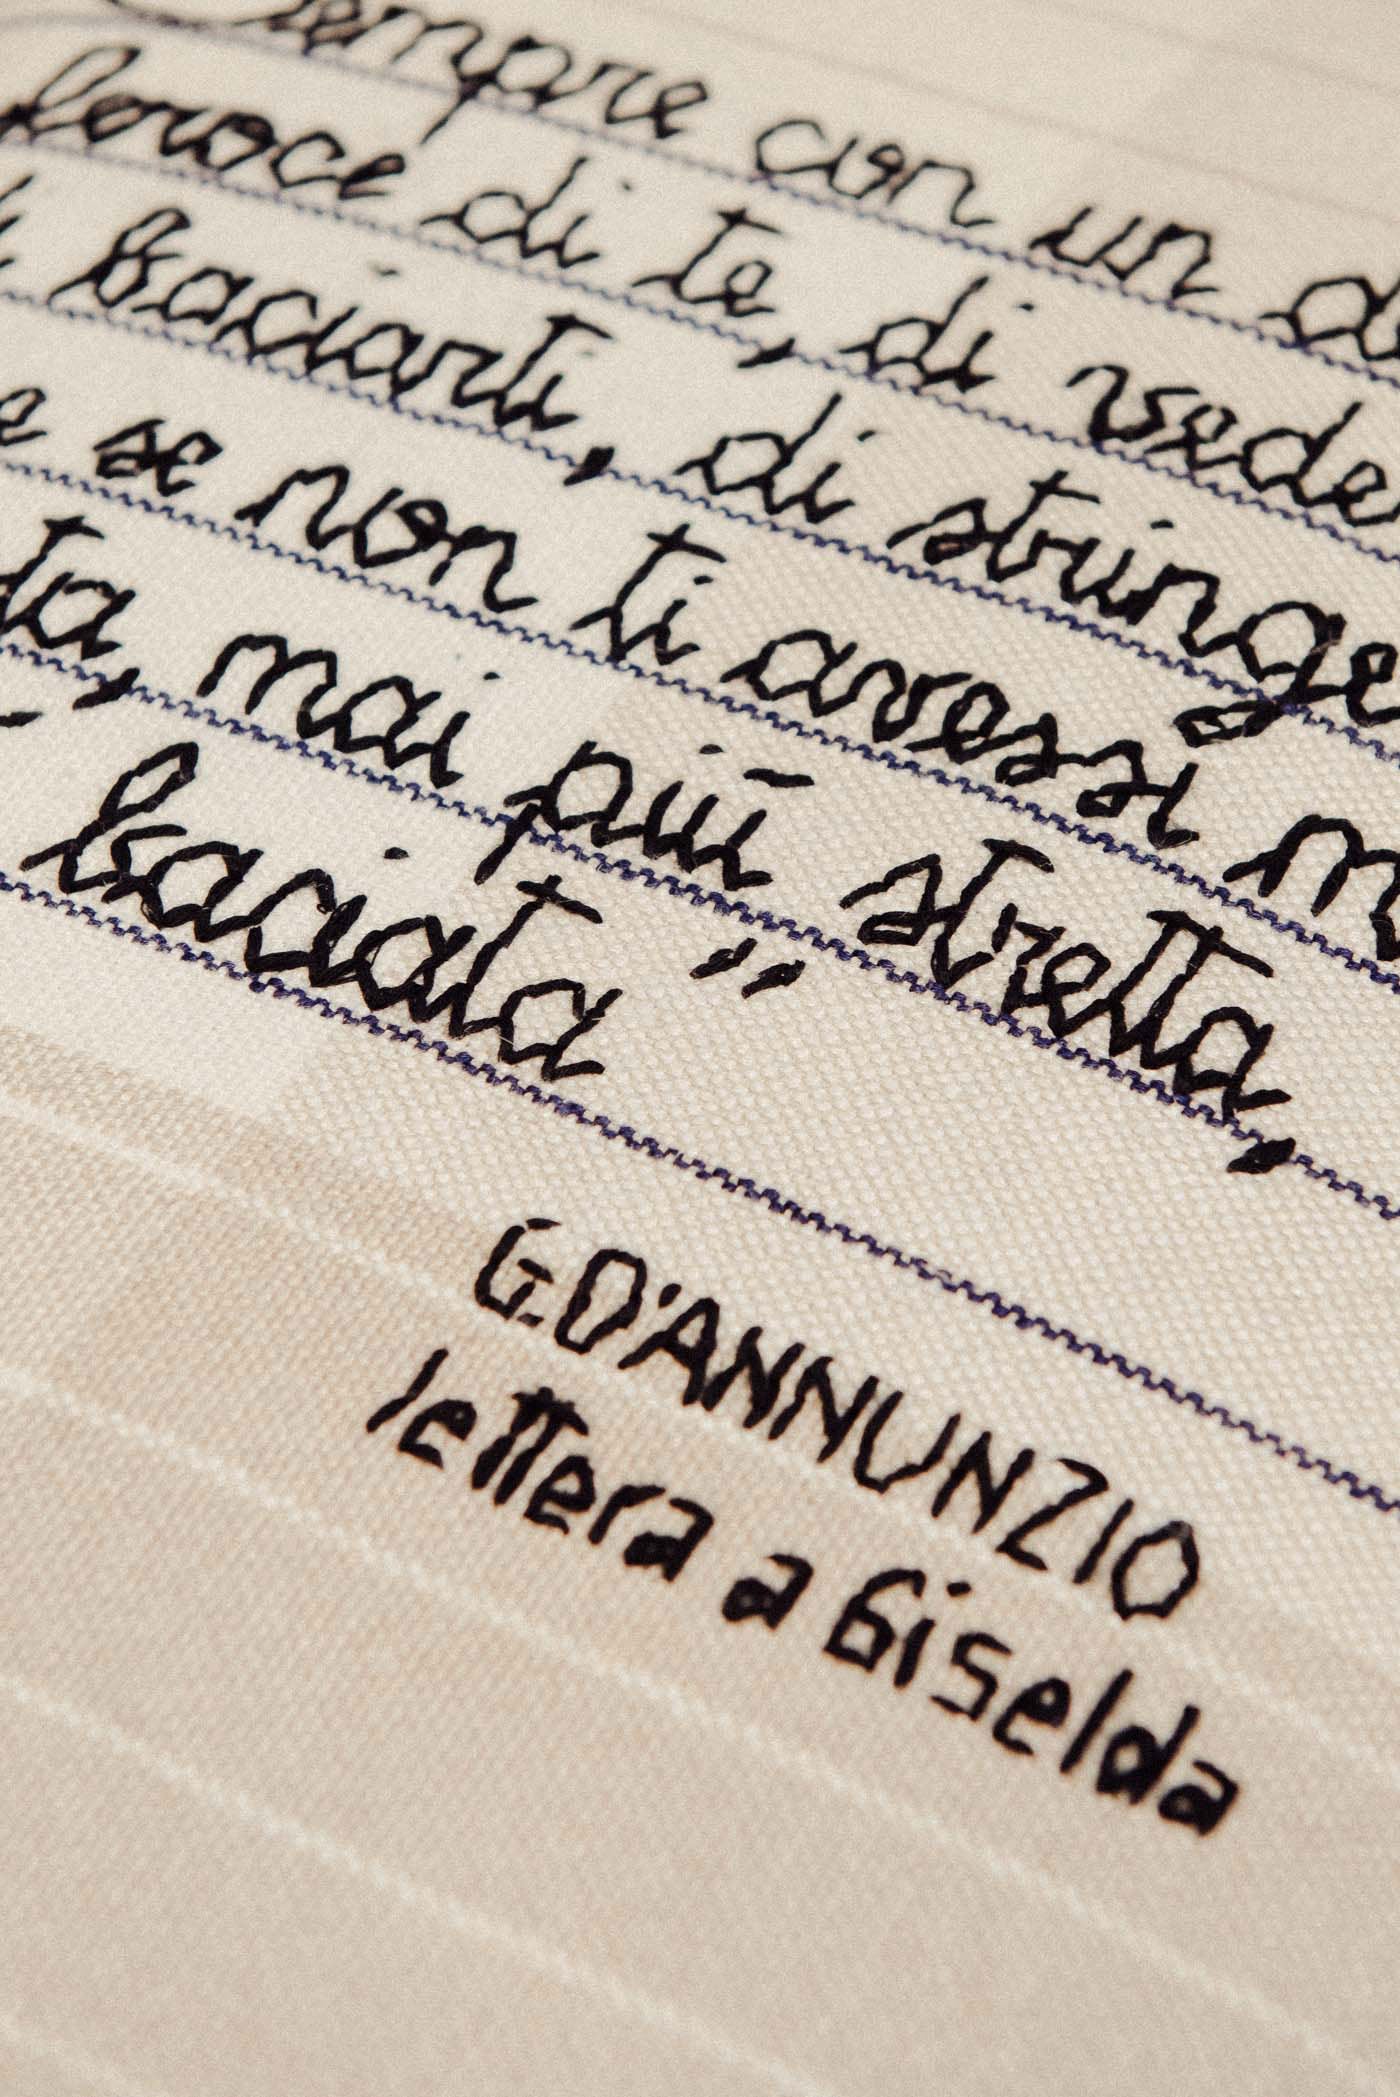 Sempre con un
feroce di te, di
baciarti, di
se non ti avessi
mai più stretta,
baciata"
G.D'ANNUNZIO
lettera a Giselda